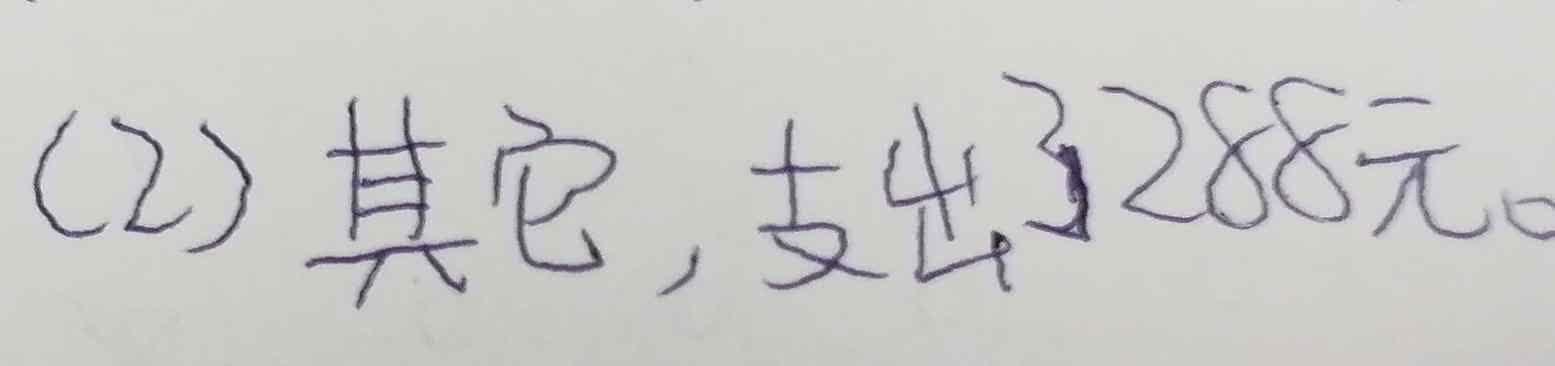 (2)其它,支出了288元。